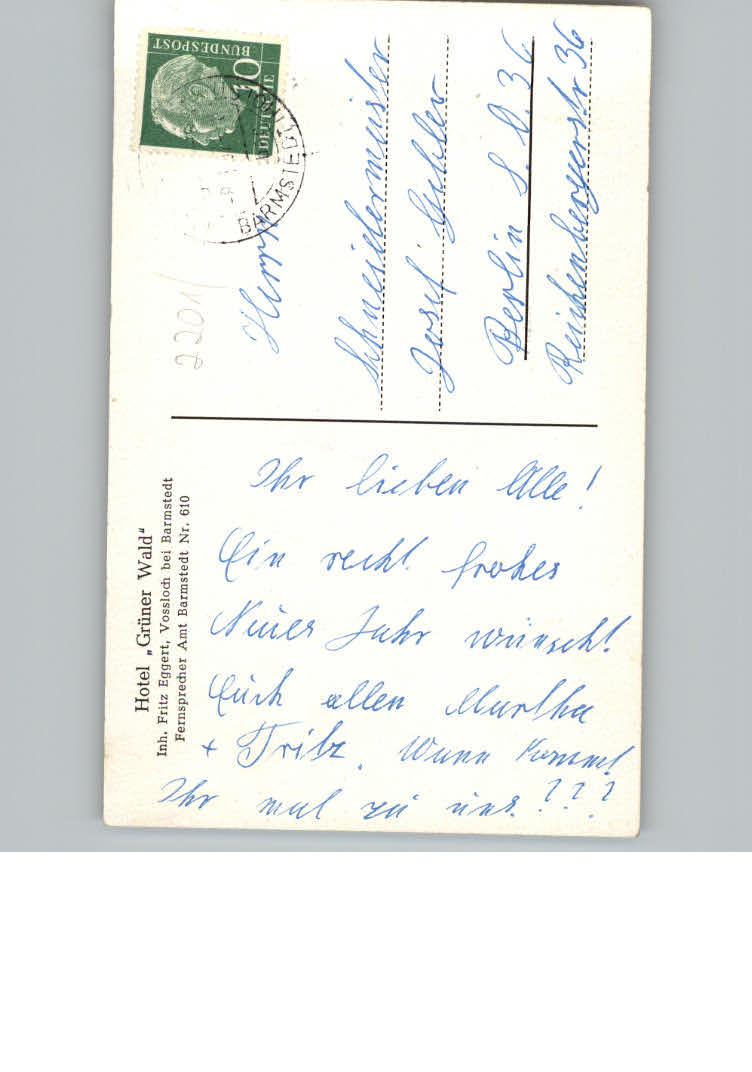 DEUTSCHE
BUNDESPOST
10
BARMSTEDT
2201
Herrn
Schneidermeister
Josef
Berlin S.O. 36
Reichenbergerstr 36
Hotel „Grüner Wald“
Inh. Fritz Eggert, Vossloch bei Barmstedt
Fernsprecher Amt Barmstedt Nr. 610
Ihr lieben Alle!
Ein recht frohes
Neues Jahr wünscht
Euch allen Martha
+ Fritz. Wann kommt
Ihr mal zu uns???